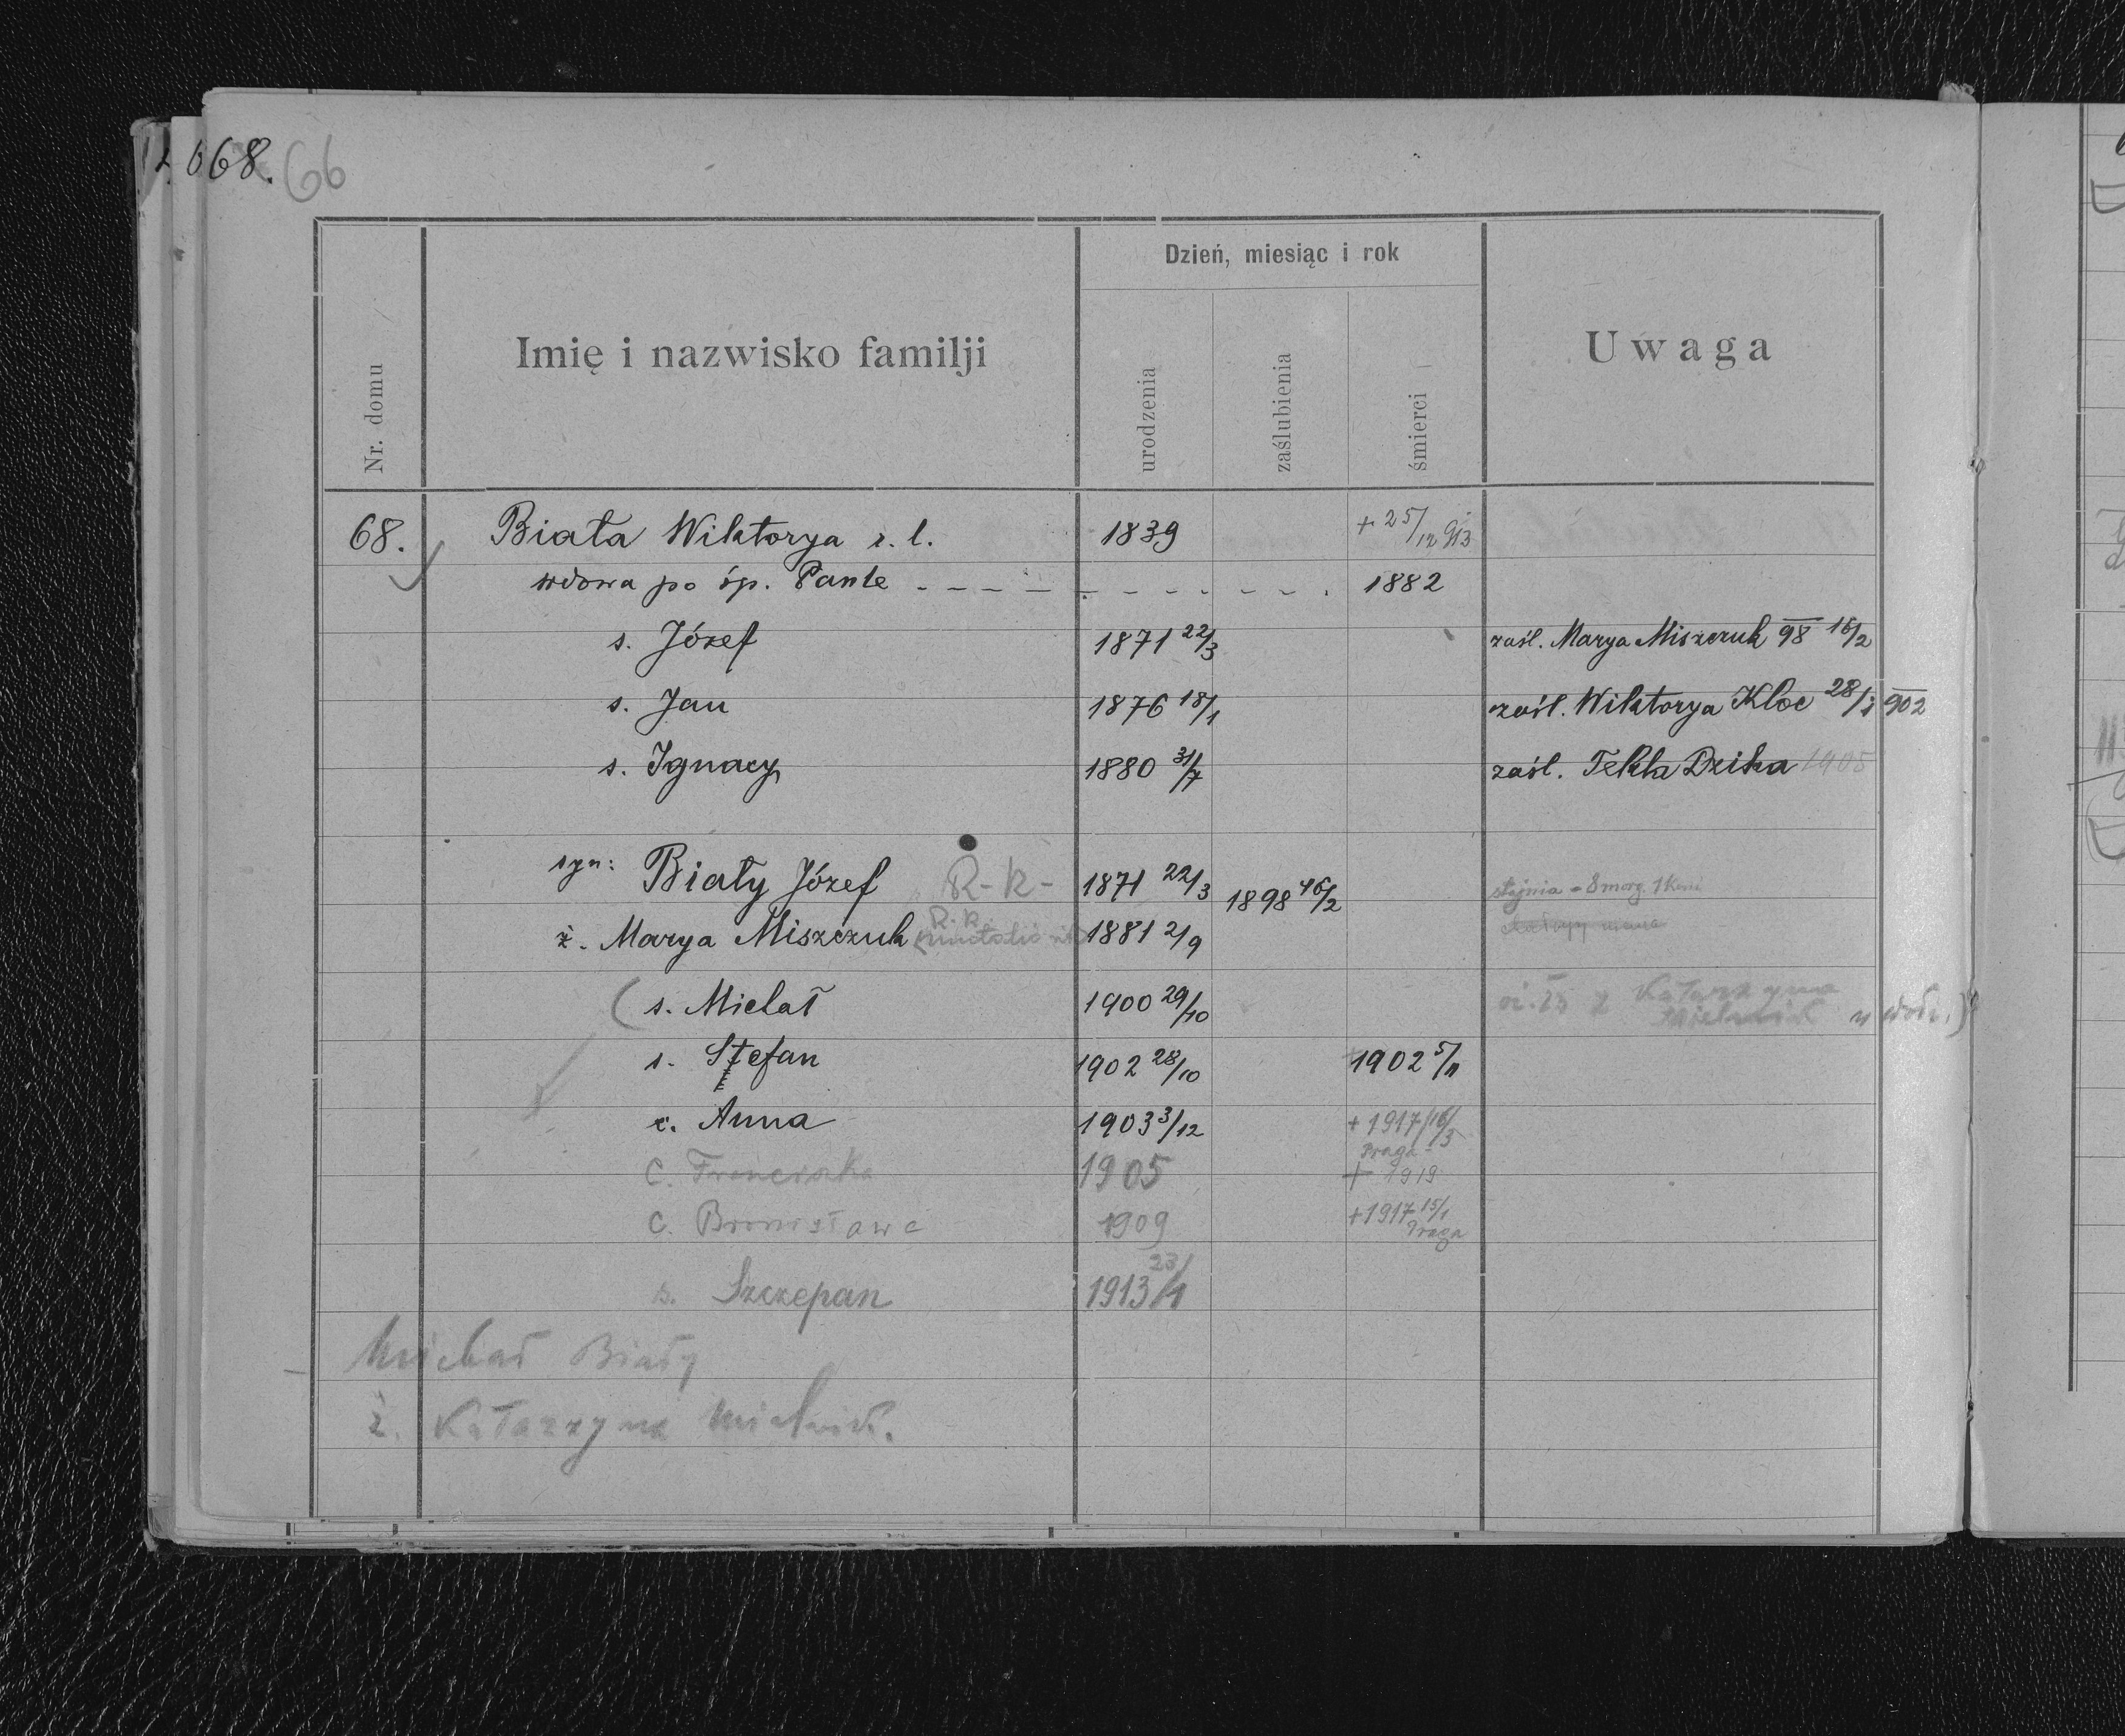 668. 66
Nr. domu
Imię i nazwisko familji
Dzień, miesiąc i rok
urodzenia
zaślubienia
śmierci
Uwaga
68. Biała Wiktorya r. l. 1839 + 25/12 913
wdowa po śp. Pawle 1882
s. Józef 1871 22/3 zaśl. Marya Miszczuk 98 16/2
s. Jan 1876 18/1 zaśl. Wiktorya Kloc 28/1 902
s. Ignacy 1880 31/7 zaśl. Tekla Dzika 1905
syn: Biały Józef R-k- 1871 22/3 1898 16/2 stajnia - 8 morg. 1 koń
ż. Marya Miszczuk R.k. 1881 2/9
s. Michał 1900 29/10 Katarzyna Mielnik
s. Stefan 1902 28/10 1902 5/11
c. Anna 1903 3/12 + 1917/16/3
Praga
c. Franciszka 1905 + 1919
c. Bronisława 1909 + 1917 15/1
Praga
s. Szczepan 1913 23/1
Michał Biały
ż. Katarzyna Mielnik.